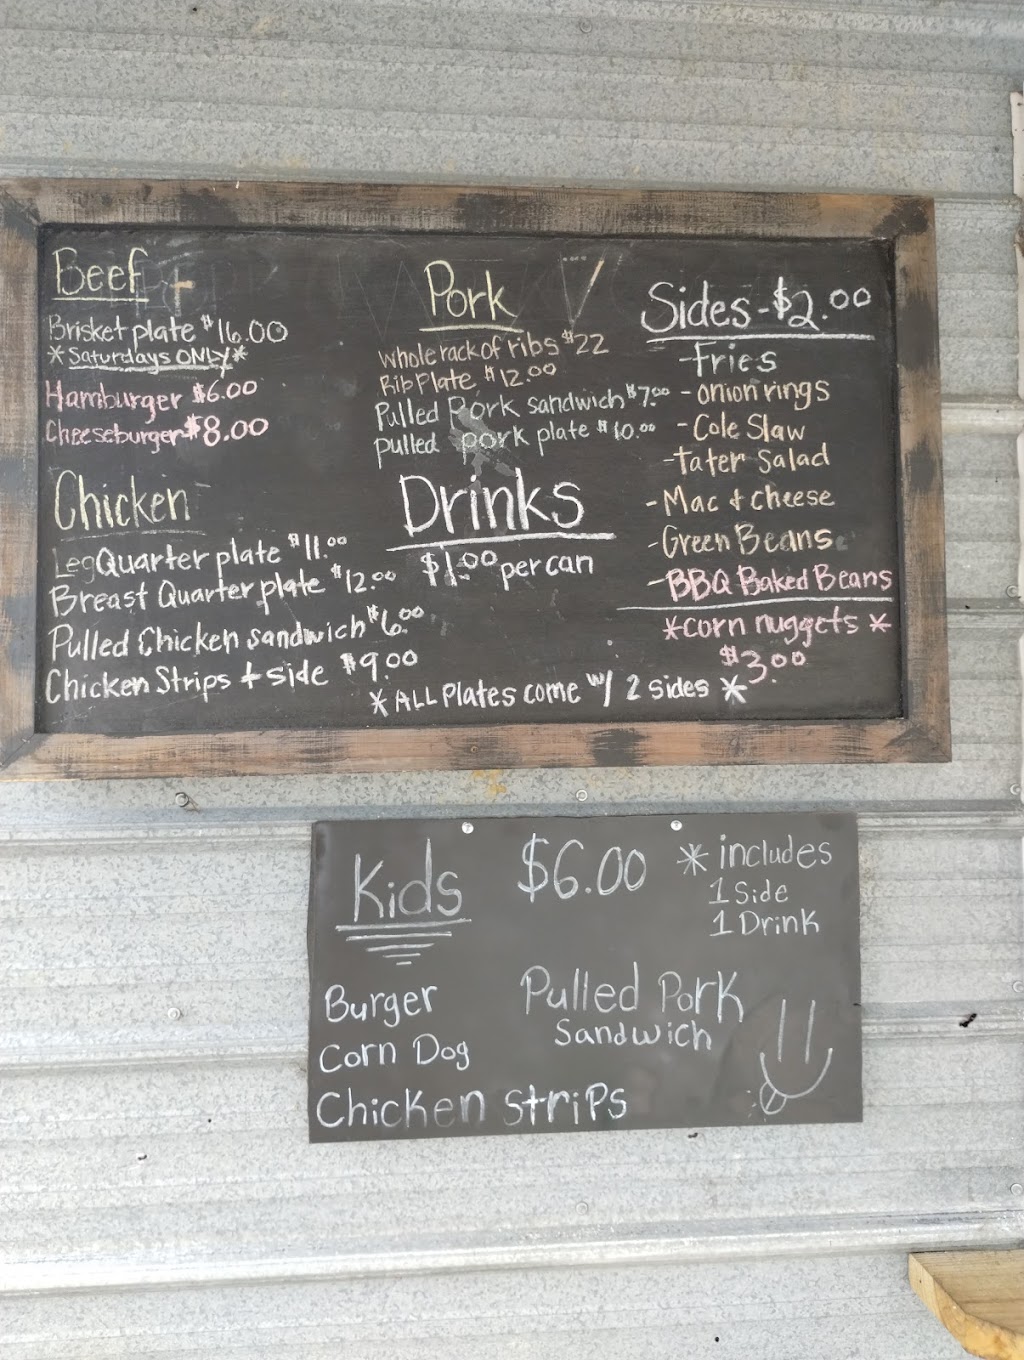 Beef
Brisket plate $16.00
*Saturdays ONLY*
Hamburger $6.00
Cheeseburger $8.00
Chicken
Leg Quarter plate $11.00
Breast Quarter plate $12.00
Pulled Chicken sandwich $6.00
Chicken Strips + side $9.00
Pork
whole rack of ribs $22
Rib Plate $12.00
Pulled Pork sandwich $7.00
Pulled pork plate $10.00
Drinks
$1.00 per can
Sides - $2.00
- Fries
- onion rings
- Cole Slaw
- Tater Salad
- Mac + cheese
- Green Beans
- BBQ Baked Beans
*corn nuggets*
$3.00
*ALL Plates come w/ 2 sides*
Kids $6.00 * includes
1 Side
1 Drink
Burger
Corn Dog
Chicken Strips
Pulled Pork
Sandwich